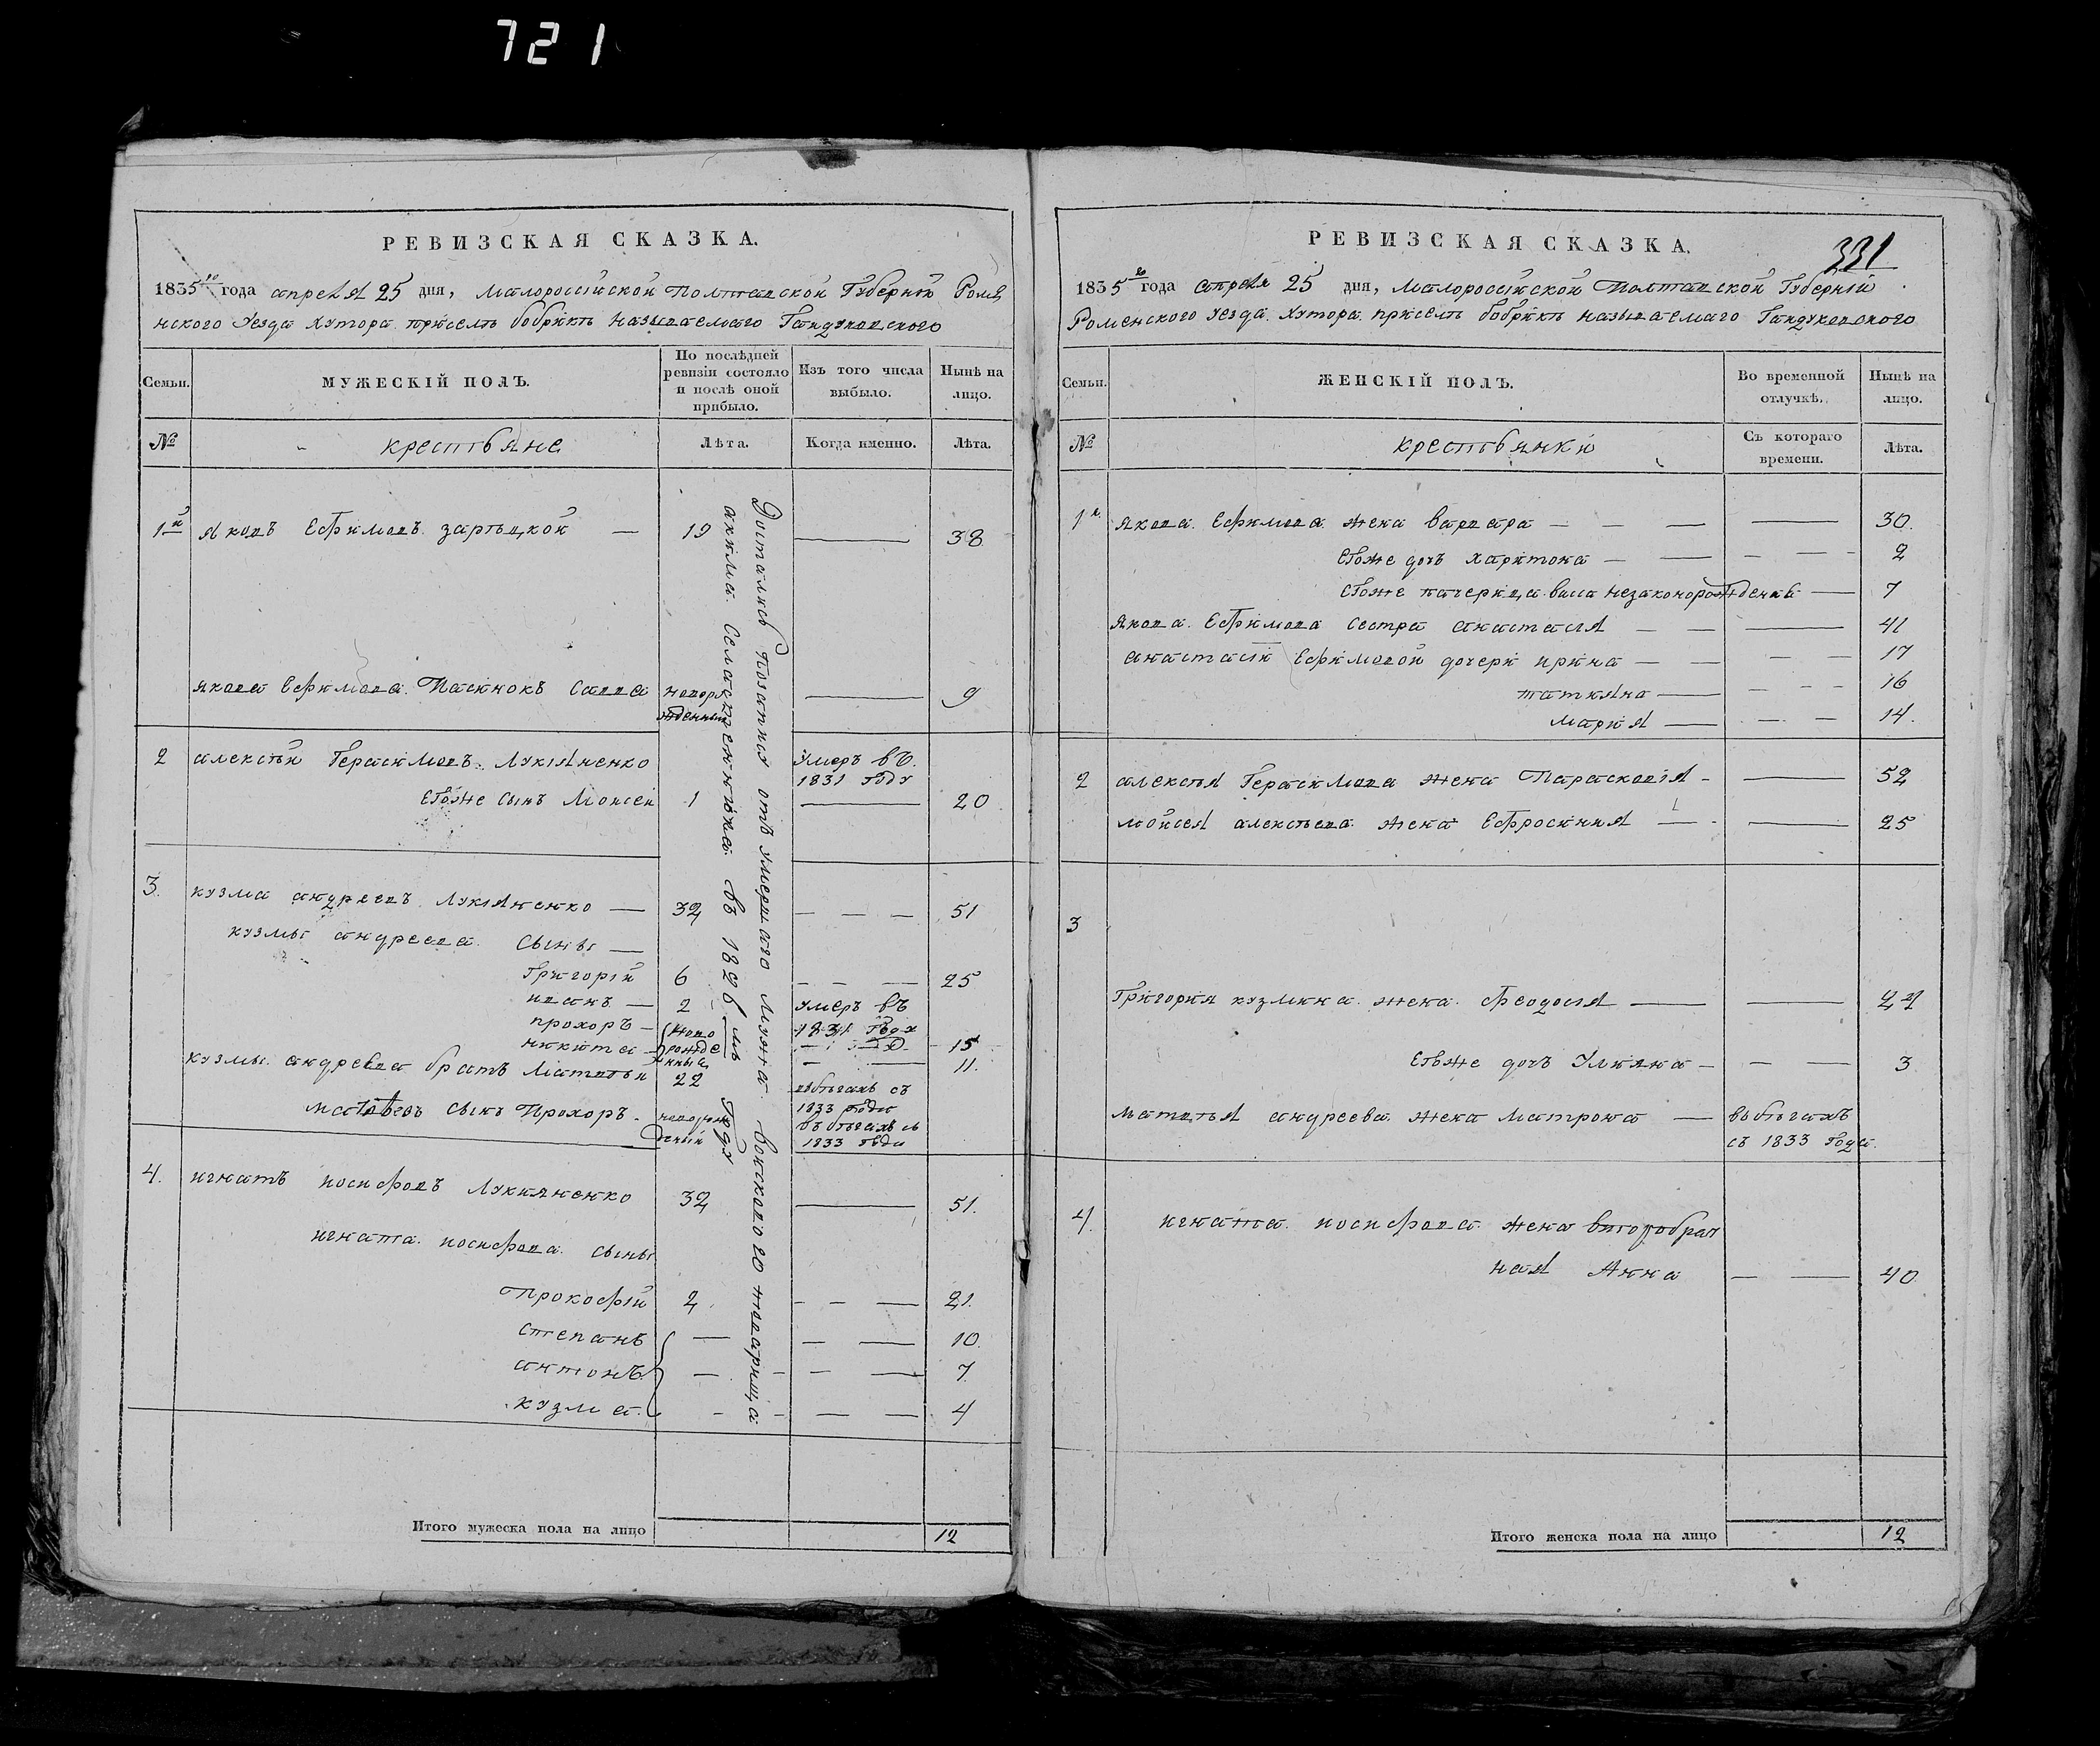 721
РЕВИЗСКАЯ СКАЗКА.
1835го года апреля 25 дня, Малороссійской Полтавской Губерніи Роме
нского Уезда Хутора приселъ бобрикъ называемаго Гандуковского
Семьи.
МУЖЕСКІЙ ПОЛЪ.
По послѣдней
ревизіи состояло
и послѣ оной
прибыло.
Изъ того числа
выбыло.
Нынѣ на
лицо.
№
крестьяне
Лѣта.
Когда именно.
Лѣта.
1й Яковъ Ефимовъ зарѣцкой — 19 — 38
Якова Ефимова Пасинокъ Савва новоро
жденный — 9
2 алексѣй Герасимовъ Лукіяненко умеръ въ
1831 году
Егоже сынъ Моисей 1 — 20
3. кузма андреевъ Лукіяненко — 32 — — — 51
кузмы андреева сыны —
Григорій 6 — — — 25
иванъ — 2 умеръ въ
1831 году
прохоръ — ново — 15
никита — рожде
нные — 11.
кузмы андреева братъ Матвѣй 22 въ бѣгахъ съ
1833 года
Матвѣевъ сынъ Прохоръ. новорож
деный въ бѣгахъ съ
1833 года
4. игнатъ иосифовъ Лукяненко 32 — 51.
игната иосифова сыны
Прокофій 2 — — — 21.
степанъ — — — 10
антонъ — — — 7.
кузма — — — 4
Достались Посаннія отъ умершаго мужа войсковаго товарища
акима Селастеннѣка въ 1826мъ Году
Итого мужеска пола на лицо 12
РЕВИЗСКАЯ СКАЗКА.
331
1835го года апреля 25 дня, Малороссійской Полтавской Губерніи
Роменского уезда Хутора приселъ бобрикъ называемаго Гандуковского
Семьи.
ЖЕНСКІЙ ПОЛЪ.
Во временной
отлучкѣ.
Нынѣ на
лицо.
№
крестьянки
Съ котораго
времени.
Лѣта.
1я Якова Ефимова жена варвара — — — — 30.
Егоже дочь харитона — — — — — 2
Егоже пачерица васса незаконорожденна — 7
Якова Ефимова сестра анастасія — — — 41
анастасіи Ефимовой дочери ирина — — — — 17
татияна — — — — 16
мария — — — 14.
2 алексѣя Герасимова жена Парасковія — — 52
Мойсея алексѣева жена Ефросиния — — 25
3
Григория кузмина жена феодосія — — 24
Егоже дочь Улияна — — — 3
матвѣя андреева жена матрона — въ бѣгахъ
съ 1833 года.
4. игната иосифова жена второбрач
ная Анна — — 40
Итого женска пола на лицо 12